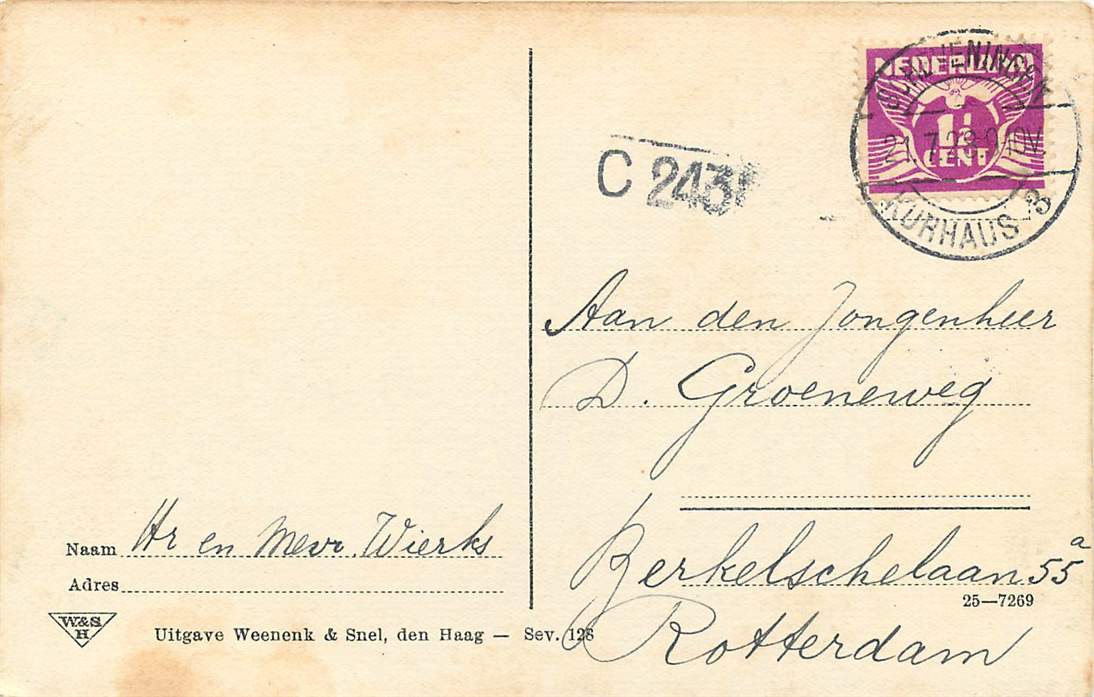 NEDERLAND
1½
CENT
KURHAUS 3
C 243
Aan den Jongenheer
D. Groeneweg
Berkelschelaan 55a
25—7269
Rotterdam
Naam Hr en Mevr Wierks
Adres
W&S
H
Uitgave Weenenk & Snel, den Haag — Sev. 128